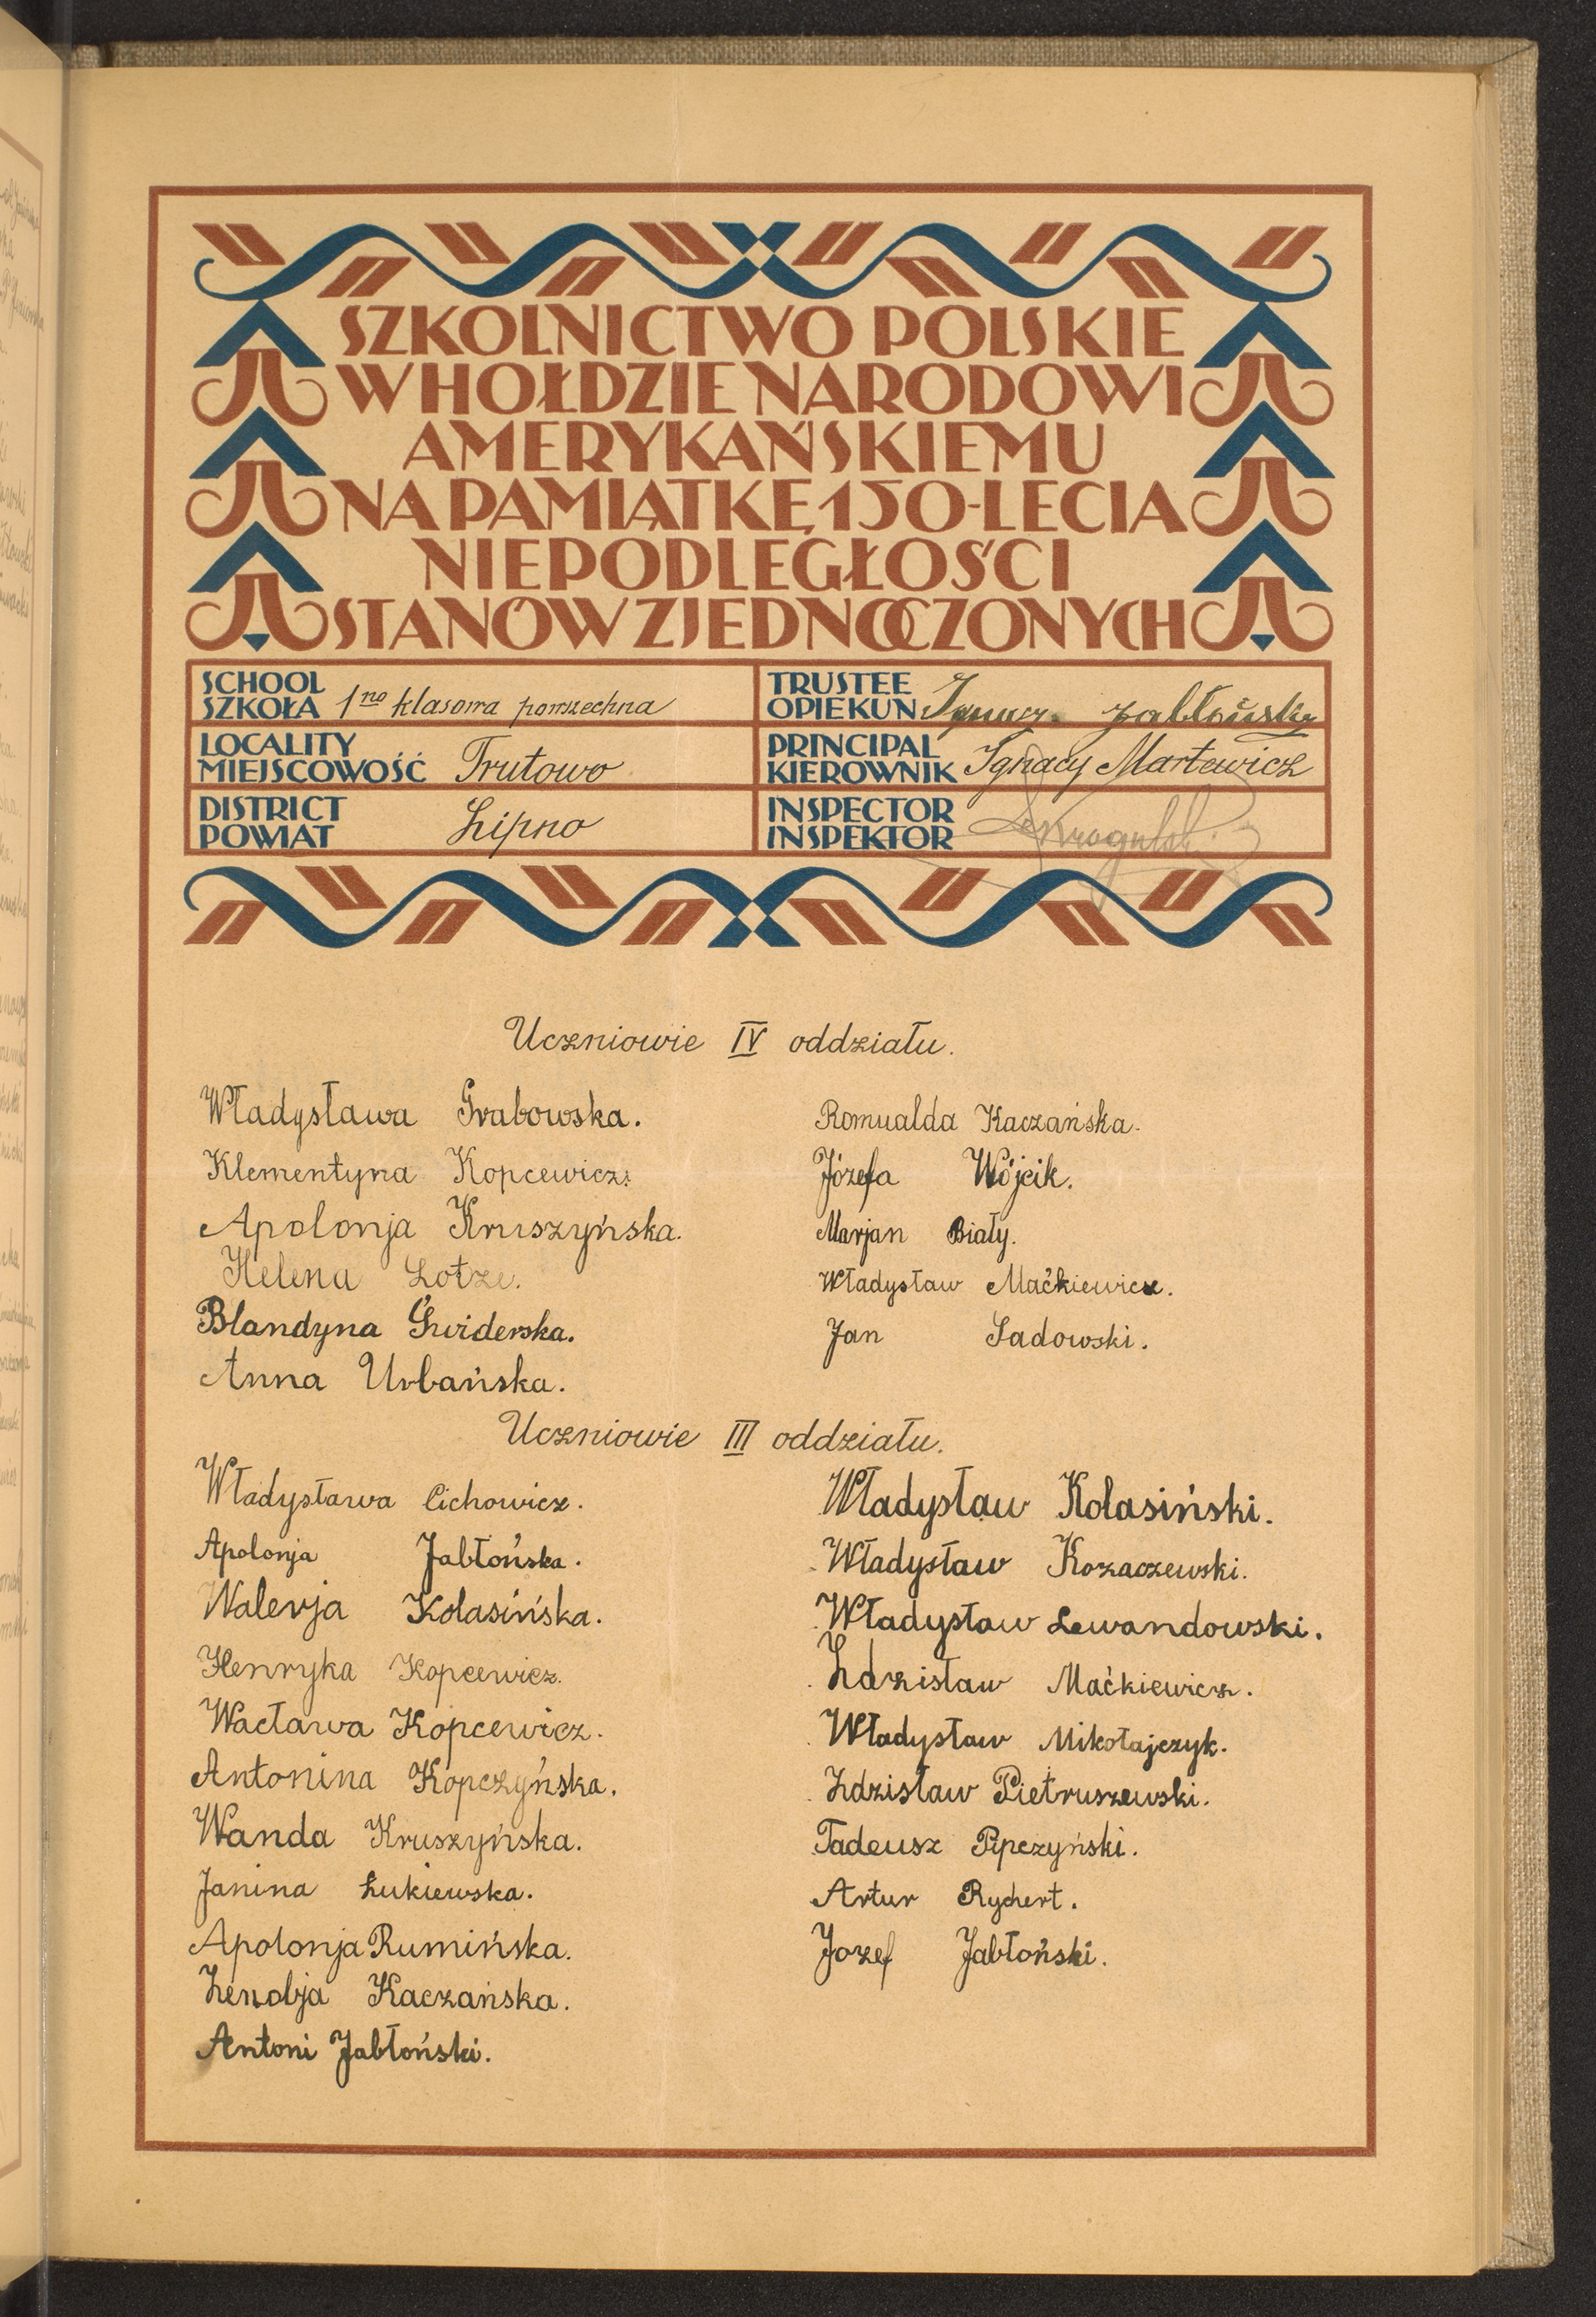 SZKOLNICTWO POLSKIE
W HOŁDZIE NARODOWI
AMERYKAŃSKIEMU
NA PAMIĄTKĘ 150-LECIA
NIEPODLEGŁOŚCI
STANÓW ZJEDNOCZONYCH
SCHOOL
SZKOŁA 1no klasowa powszechna
TRUSTEE
OPIEKUN Jabłoński
LOCALITY
MIEJSCOWOŚĆ Trutowo
PRINCIPAL
KIEROWNIK Ignacy Martewicz
DISTRICT
POWIAT Lipno
INSPECTOR
INSPEKTOR
Uczniowie IV oddziału.
Władysława Grabowska.
Klementyna Kopcewicz.
Apolonja Kruszyńska.
Helena Lotze.
Blandyna Świderska.
Anna Urbańska.
Romualda Kaczańska.
Józefa Wójcik.
Marjan Biały.
Władysław Maćkiewicz.
Jan Sadowski.
Uczniowie III oddziału.
Władysława Cichowicz.
Apolonja Jabłońska.
Walerja Kolasińska.
Henryka Kopcewicz.
Wacława Kopcewicz.
Antonina Kopczyńska.
Wanda Kruszyńska.
Janina Łukiewska.
Apolonja Rumińska.
Zenobja Kaczańska.
Antoni Jabłoński.
Władysław Kolasiński.
Władysław Kozaczewski.
Władysław Lewandowski.
Zdzisław Maćkiewicz.
Władysław Mikołajczyk.
Zdzisław Pietruszewski.
Tadeusz Pipczyński.
Artur Rychert.
Jozef Jabłoński.